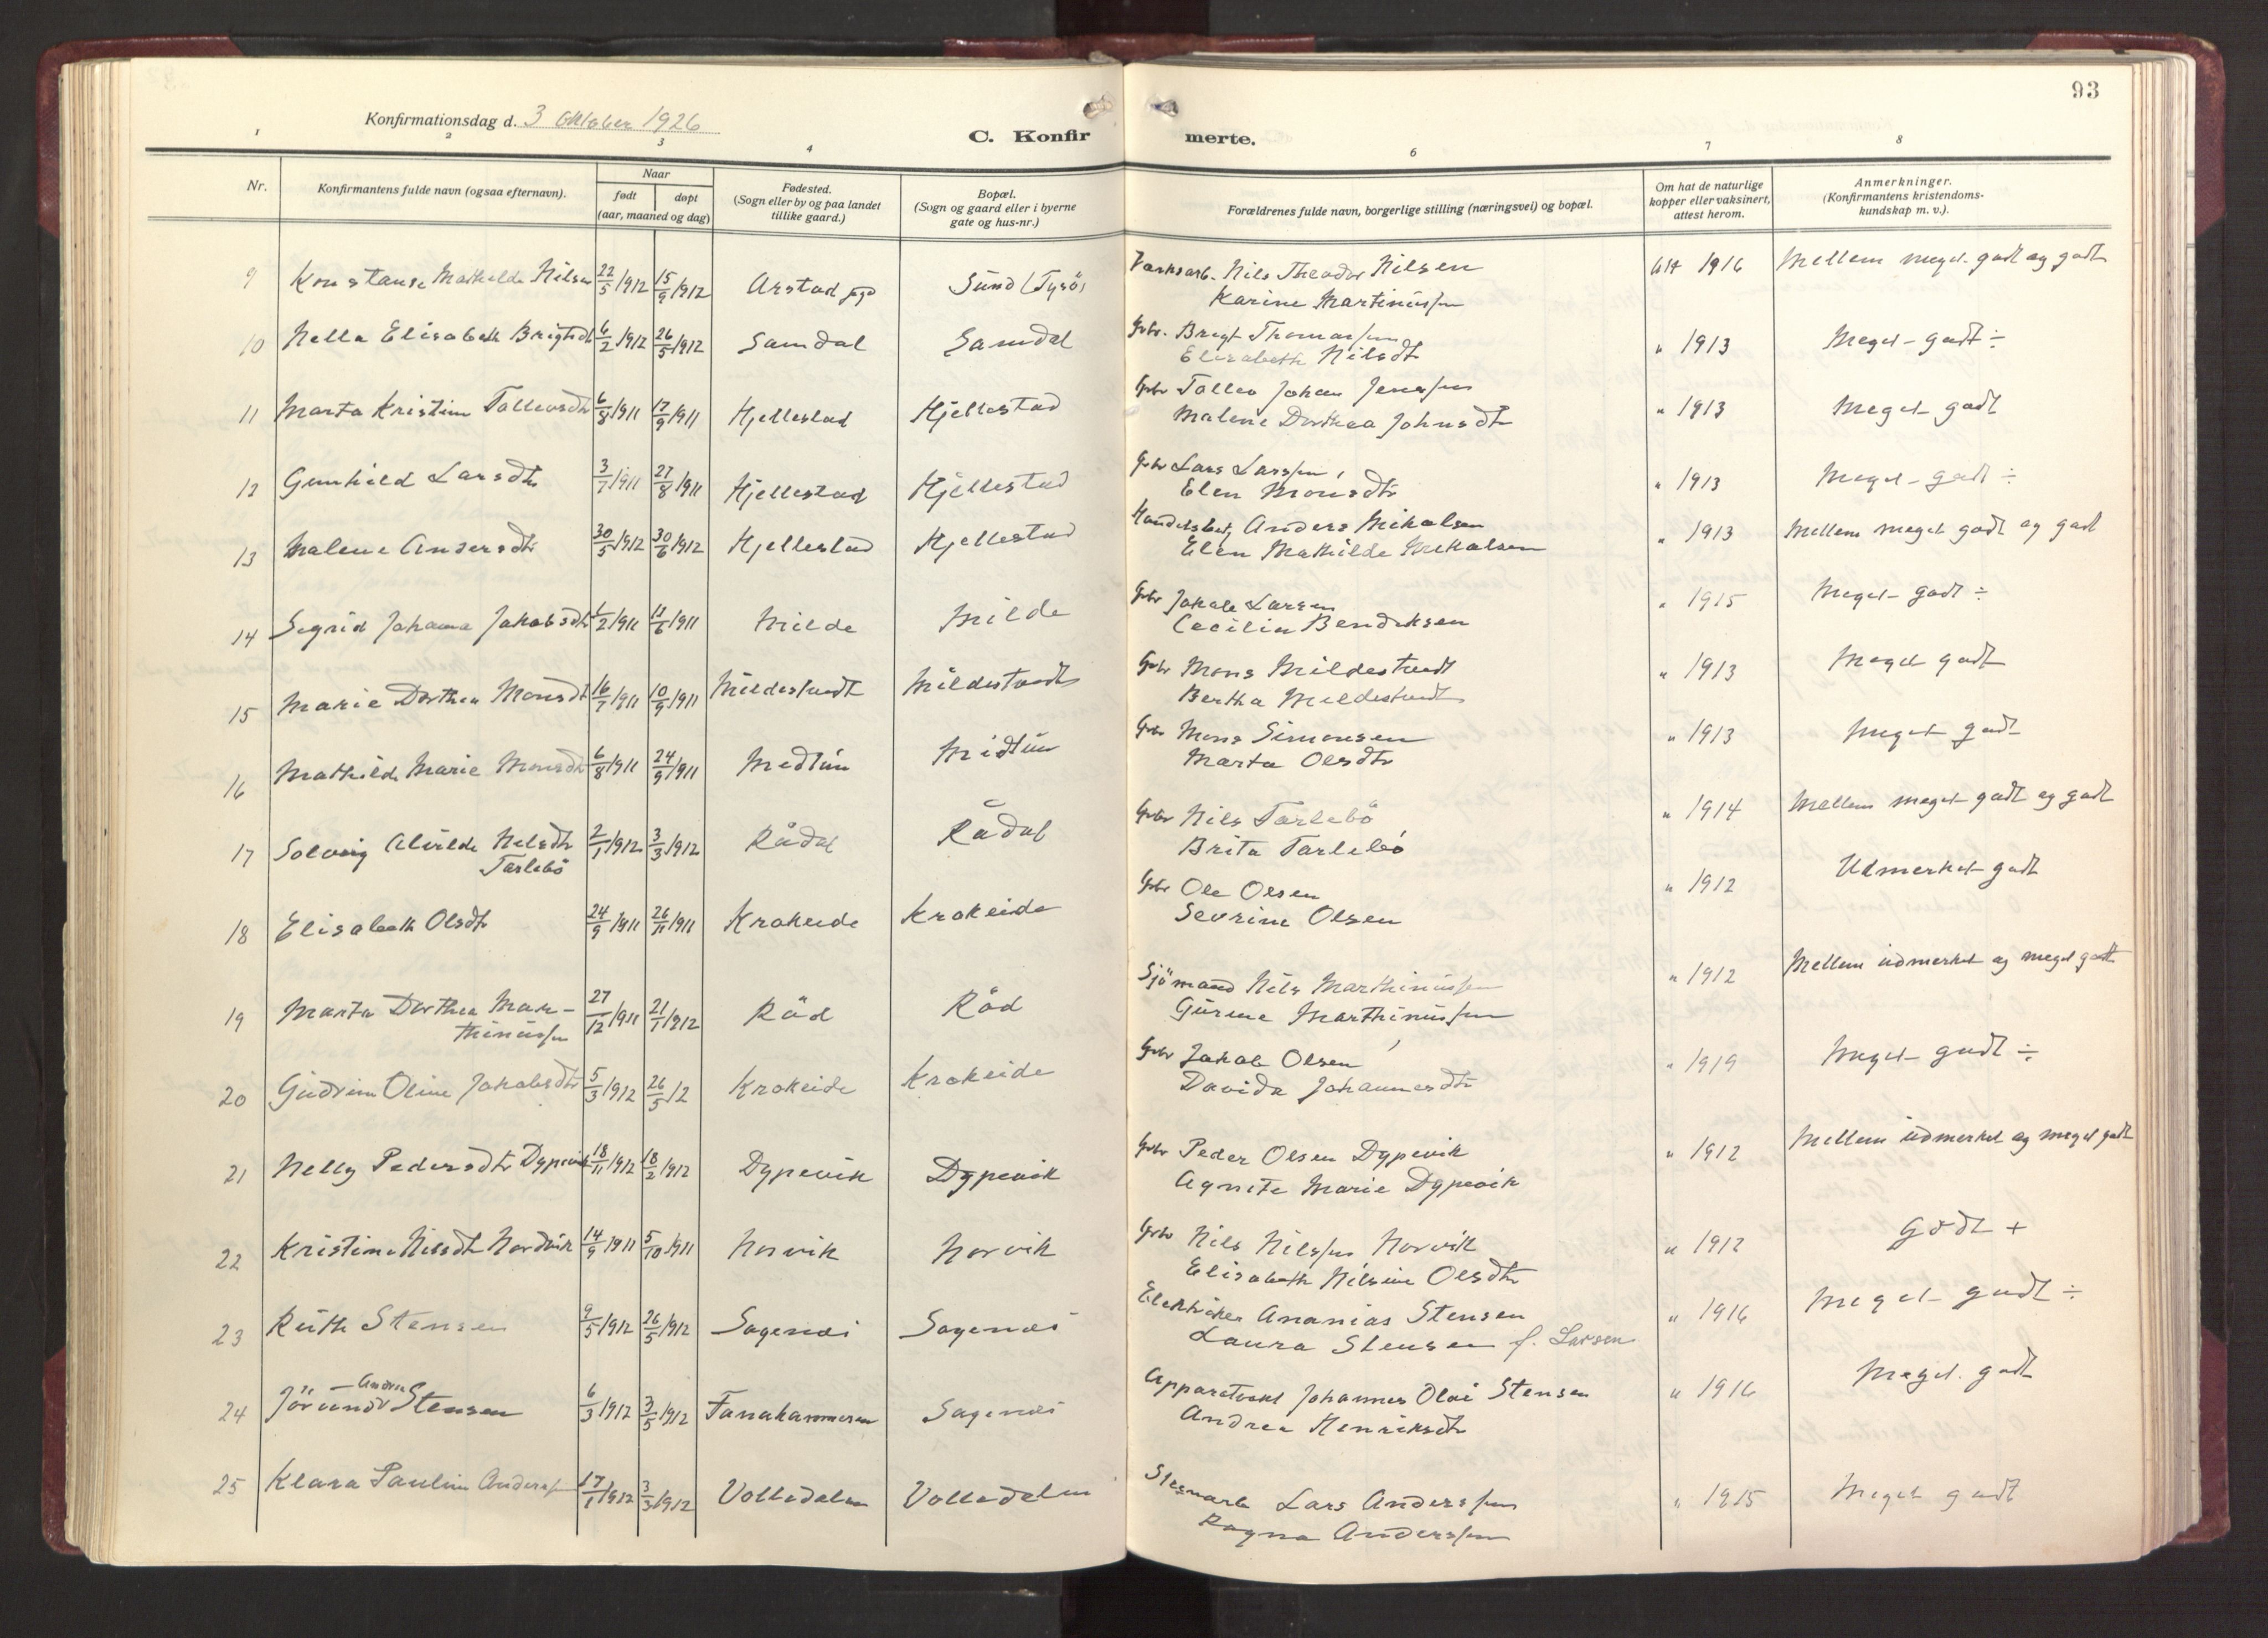 93
Konfirmationsdag d. 3 Oktober 1926
C. Konfirmerte.
1 2 3 4 6 7 8
Nr.
Konfirmantens fulde navn (ogsaa efternavn).
Naar
født døpt
(aar, maaned og dag)
Fødested.
(Sogn eller by og paa landet
tillike gaard.)
Bopæl.
(Sogn og gaard eller i byerne
gate og hus-nr.)
Forældrenes fulde navn, borgerlige stilling (næringsvei) og bopæl.
Om hat de naturlige
kopper eller vaksinert,
attest herom.
Anmerkninger.
(Konfirmantens kristendoms-
kundskap m. v.).
9 Konstanse Mathilde Nilsen 22/5/1912 15/9/1912 Årstad Sund (Tysö) Nils Theodor Nilsen 1916 Mellem meget godt og godt
Karine Martinussen
10 Nella Elisabeth Brigtsdtr 6/2/1912 26/5/1912 Samdal Samdal Gbr. Brigt Thomassen " 1913 Meget godt ÷
Elisabeth Nilsdtr
11 Marta Kristine Tollevsdtr 6/8/1911 17/9/1911 Hjellestad Hjellestad Gbr Tollev Johan Jenssen " 1913 Meget godt
Malene Dorthea Johnsdtr
12 Gunhild Larsdtr 3/7/1911 27/8/1911 Hjellestad Hjellestad Gbr Lars Larssen " 1913 Meget godt ÷
Elen Monsdtr
13 Malene Andersdtr 30/5/1912 30/6/1912 Hjellestad Hjellestad Anders Mikalsen " 1913 Mellem meget godt og godt
Elen Mathilde Mikalsen
14 Sigrid Johanna Jakobsdtr 1/2/1911 11/6/1911 Milde Milde Gbr Jakob Larsen " 1915 Meget godt ÷
Cecilia Bendiksen
15 Marie Dorthea Monsdtr 16/7/1911 10/9/1911 Mildestvedt Mildestvedt Gbr Mons Mildestvedt " 1913 Meget godt
Bertha Mildestvedt
16 Mathilde Marie Monsdtr 6/8/1911 24/9/1911 Midtun Midtun Gbr Mons Simonsen " 1913 Meget godt
Marta Olsdtr
17 Solveig Alvilde Nilsdtr 2/1/1912 3/3/1912 Rådal Rådal Gbr Nils Tarlebö " 1914 Mellem meget godt og godt
Tarlebö Brita Tarlebö
18 Elisabeth Olsdtr 24/9/1911 26/11/1911 Krokeide Krokeide Gbr Ole Olsen " 1912 Udmerket godt
Sevrine Olsen
19 Marta Dorthea Mar- 27/12/1911 21/1/1912 Råd Råd Sjömand Nils Marthinussen " 1912 Mellem udmerket og meget godt
thinussen Gurine Marthinussen
20 Gudrun Oline Jakobsdtr 5/3/1912 26/5/12 Krokeide Krokeide Gbr Jakob Olsen " 1919 Meget godt ÷
Davida Johannesdtr
21 Nelly Pedersdtr Dypevik 18/11/1912 18/2/1912 Dypevik Dypevik Gbr Peder Olsen Dypevik " 1912 Mellem udmerket og meget godt
Agnete Marie Dypevik
22 Kristine Nilsdtr Nordvik 14/9/1911 5/10/1911 Norvik Norvik Gbr Nils Nilssen Norvik " 1912 Godt +
Elisabeth Nilsine Olsdtr
23 Ruth Stensen 9/5/1912 26/5/1912 Sagenæs Sagenæs Elektriker Ananias Stensen " 1916 Meget godt ÷
Laura Stensen f. Larsen
24 Jörund Andrea Stensen 6/3/1912 3/5/1912 Fanahammeren Sagenæs Johannes Olai Stensen " 1916 Meget godt
Andrea Henriksdtr
25 Klara Pauline Anderssen 17/1/1912 3/3/1912 Volledalen Volledalen Lars Anderssen " 1915 Meget godt
Ragna Anderssen